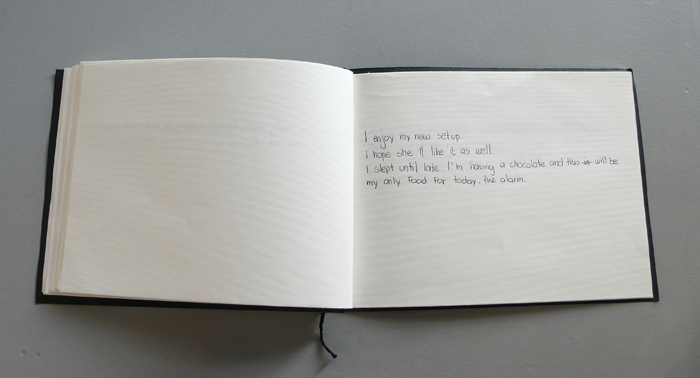 I enjoy my new setup.
I hope she'll like it as well.
I slept until late. I'm having a chocolate and this is will be
my only food for today. the alarm.